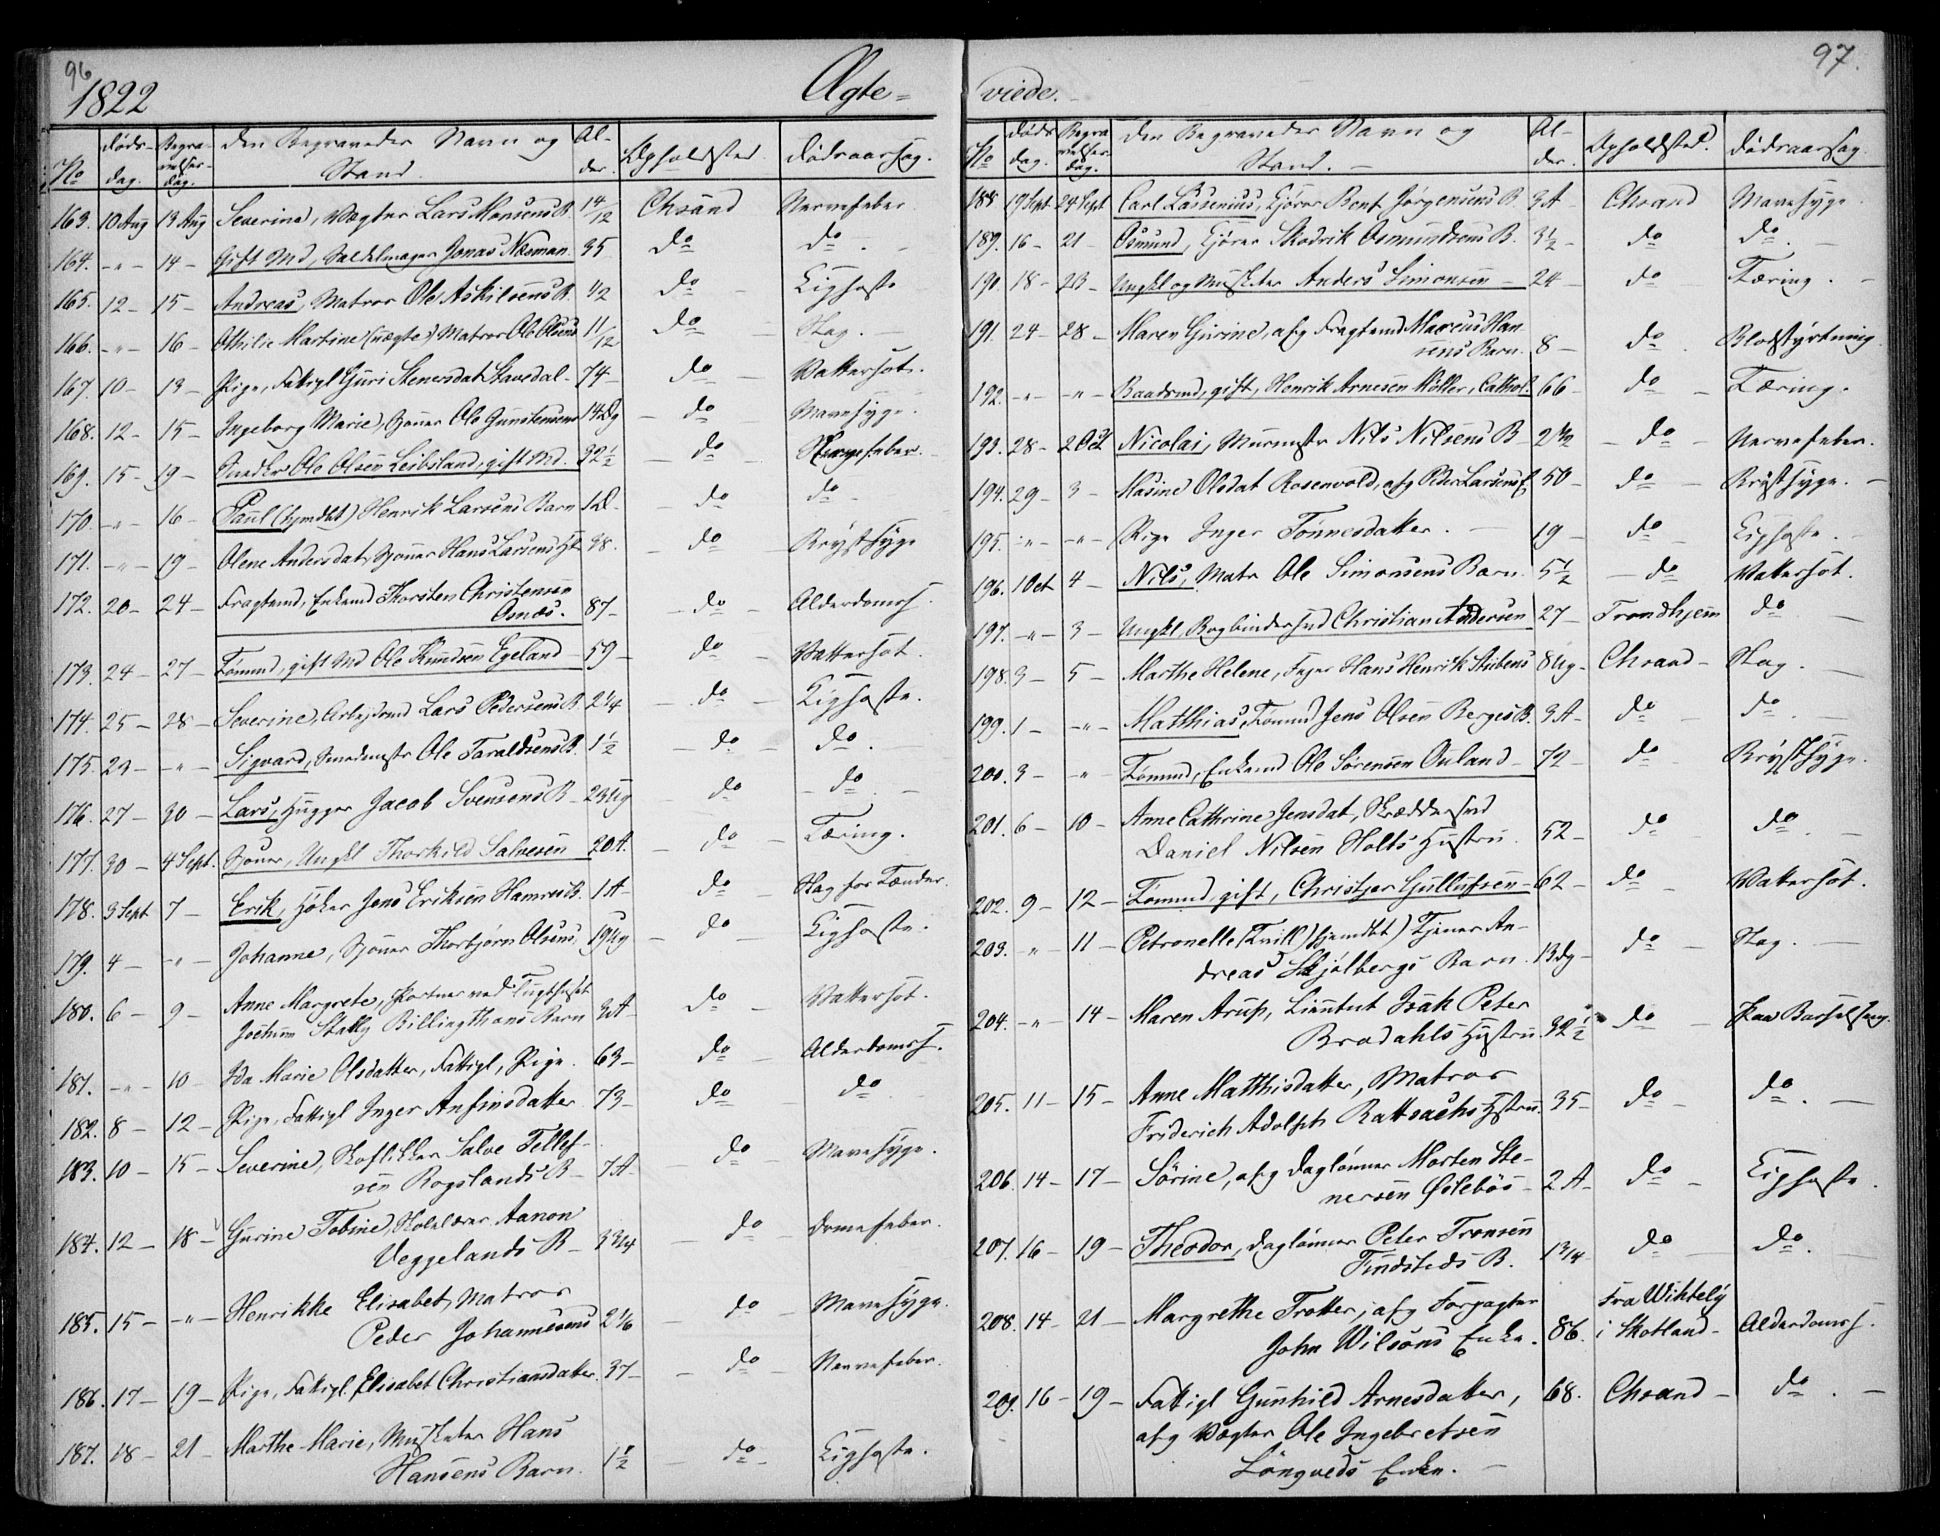 96
1822 Ægte-
No Døds-dag. Begravelses-dag. Den Begravedes Navn og Stand. Alder. Opholdsted. Dødsaarsag.
163. 10 Aug 13 Aug Severine, Vægter Lars Monsens B. 14/12 Chsand Nervefeber.
164. -"- 14- Gift Md, Sadelmager Jonas Næman 35 do do
165. 12- 15- Andreas, Matros Ole Askilsens B. 1/2 do Kighoste
166. -"- 16- Othilie Martine (uægte) Matros Ole Olsens 11/12 do Slag.
167. 10- 13- Pige, Fattigl Guri Stenersdat Stavedal- 74- do Vattersot.
168. 12- 15- Ingeborg Marie, Bonner Ole Gunstensens 14 Dg do Mavesyge.
169. 15- 19- Snedker Ole Olsen Leibsland, gift Md. 32 1/2 do
170. -"- 16- Paul (hjmdbt) Henrik Larsens Barn 1 D. do do
171. -"- 19- Olene Andersdat, Hans Larsens H. 38. do Brystsyge
172. 20- 24- Fragtmd, Enkemd Thorsten Christensen
Osnæs. 87- do Alderdomss.
173. 24- 27- Tømmd, gift Md Ole Knudsen Egeland 59- do Vattersot.
174. 25- 28- Severine, Arbejdsmd Lars Pedersens B 2 1/4 do Kighoste.
175. 29- -"- Sigvard, Smedemstr Ole Taraldsens B. 1 1/2 do do.
176. 27- 30- Lars, Hugger Jacob Svensens B- 23 Ug do do
177. 30- 4 Sept. Ungkl Thorkild Salvesen 20 A. do Tæring.
178. 3 Sept 7- Erik, Høker Jens Eriksen Hamres B. 1 A- do Slag for Tænder.
179. 4- -"- Johanne, Thorbjørn Olsens, 19 Ug do Kighoste.
180. 6- 9- Anne Margrete, Portner ved Tugthuset
Jochum Stally Billingthons Barn 3 A- do Vattersot.
181. -"- 10- Ida Marie Olsdatter, Fattigl, Pige. 63- do Alderdomss.
182. 8- 12- Pige, Fattigl Inger Ansinsdatter 73- do do
183. 10- 15- Severine, Skoflikker Salve Tellef-
sen Rogslands B- 7 A- do Mavesyge.
184. 12- 18- Gurine Tobine, Skolelærer Aanon
Veggelands B- 3 3/4 do
185. 15- -"- Henrikke Elisabet, Matros
Peder Johannesens 2 1/6 do Mavesyge.
186. 17- 19- Pige, Fattigl. Elisabet Christiansdatter. 37- do Nervefeber.
187. 18- 21- Marthe Marie, Musketer Hans
Hansens Barn. 1 1/2 do Kighoste.
97.
viede.
No Døds dag. Begravelses-dag. Den Begravedes Navn og Stand. Alder. Opholdsted. Dødsaarsag.
188. 19 Sept 24 Sept Carl Lassenius, Kjører Bent Jørgensens B. 3 A- Chsand Mavesyge.
189. 16- 21- Osmund, Kjører Skødrik Osmundsens B. 3 1/2- do do.
190. 18- 23- Ungkl og Musketer Anders Simonsen 24- do Tæring.
191. 24- 28- Maren Gurine, afg Fragtemd Marcus Han
sens Barn. 8- do Blodstyrtning.
192. -"- -"- Baadsmd, gift, Henrik Arnesen Møller, Cathol. 66- do Tæring.
193. 28- 2 Oct Nicolai, Murmestr Nils Nilsens B do Nervefeber.
194. 29- 3- Masine Olsdat Rosenvold, afg Peder Larsens E. 50- do Brystsyge.
195. -"- -"- Pige Inger Tønnesdatter. 19- do Kighoste.
196. 1 Oct 4- Nils, Matr Ole Simonsens Barn 5 1/2 do Vattersot.
197. -"- 3- Ungkl, Bogbindersvd Christian Andersen 27- Trondhjem do
198. 3- 5- Marthe Helene, Fejer Hans Henrik Stubens 8 Ug- Chsand- Slag.
199. 1- -"- Matthias, Tømmd Jens Olsen Berges B. 3 A- do do
200. 3- -"- Tømmd, Enkemd Ole Sørensen Ouland- 72- do Brystsyge.
201. 6- 10- Anne Cathrine Jensdat, Skræddersvd
Daniel Nilsen Holts Hustru. 52- do do
202. 9- 12- Tømmd, gift, Christjer Gullufsen- 62- do Vattersot.
203. -"- 11- Petronelle (Tvill) (hjemdbt) Tjener An-
dreas Skjølbergs Barn. 13 dg- do Slag.
204. -"- 14- Maren Arup, Lieutnt Isak Peter
Brodahls Hustru 32 1/2 do Paa Barselseng.
205. 11- 15- Anne Matthisdatter, Matros
Friderich Adolph Rattsachs Hstru. 35- do do.
206. 14- 17- Sørine, afg Daglønner Morten Ste-
nersen Øslebøs- 2 A- do Kighoste.
207. 16- 19- Theodor, Daglønner Peter Tronsen
Findsteds B. 1 3/4- do do.
208. 14- 21- Margrethe Trotter, afg Forpagter
John Wilsons Enke. 86. Fra Wihtely
i Skotland- Alderdomss.
209. 16- 19- Fattigl Gunhild Arnesdatter, 68. Chsand- do.
afg Vægter Ole Ingebretsen
Løngveds Enke.